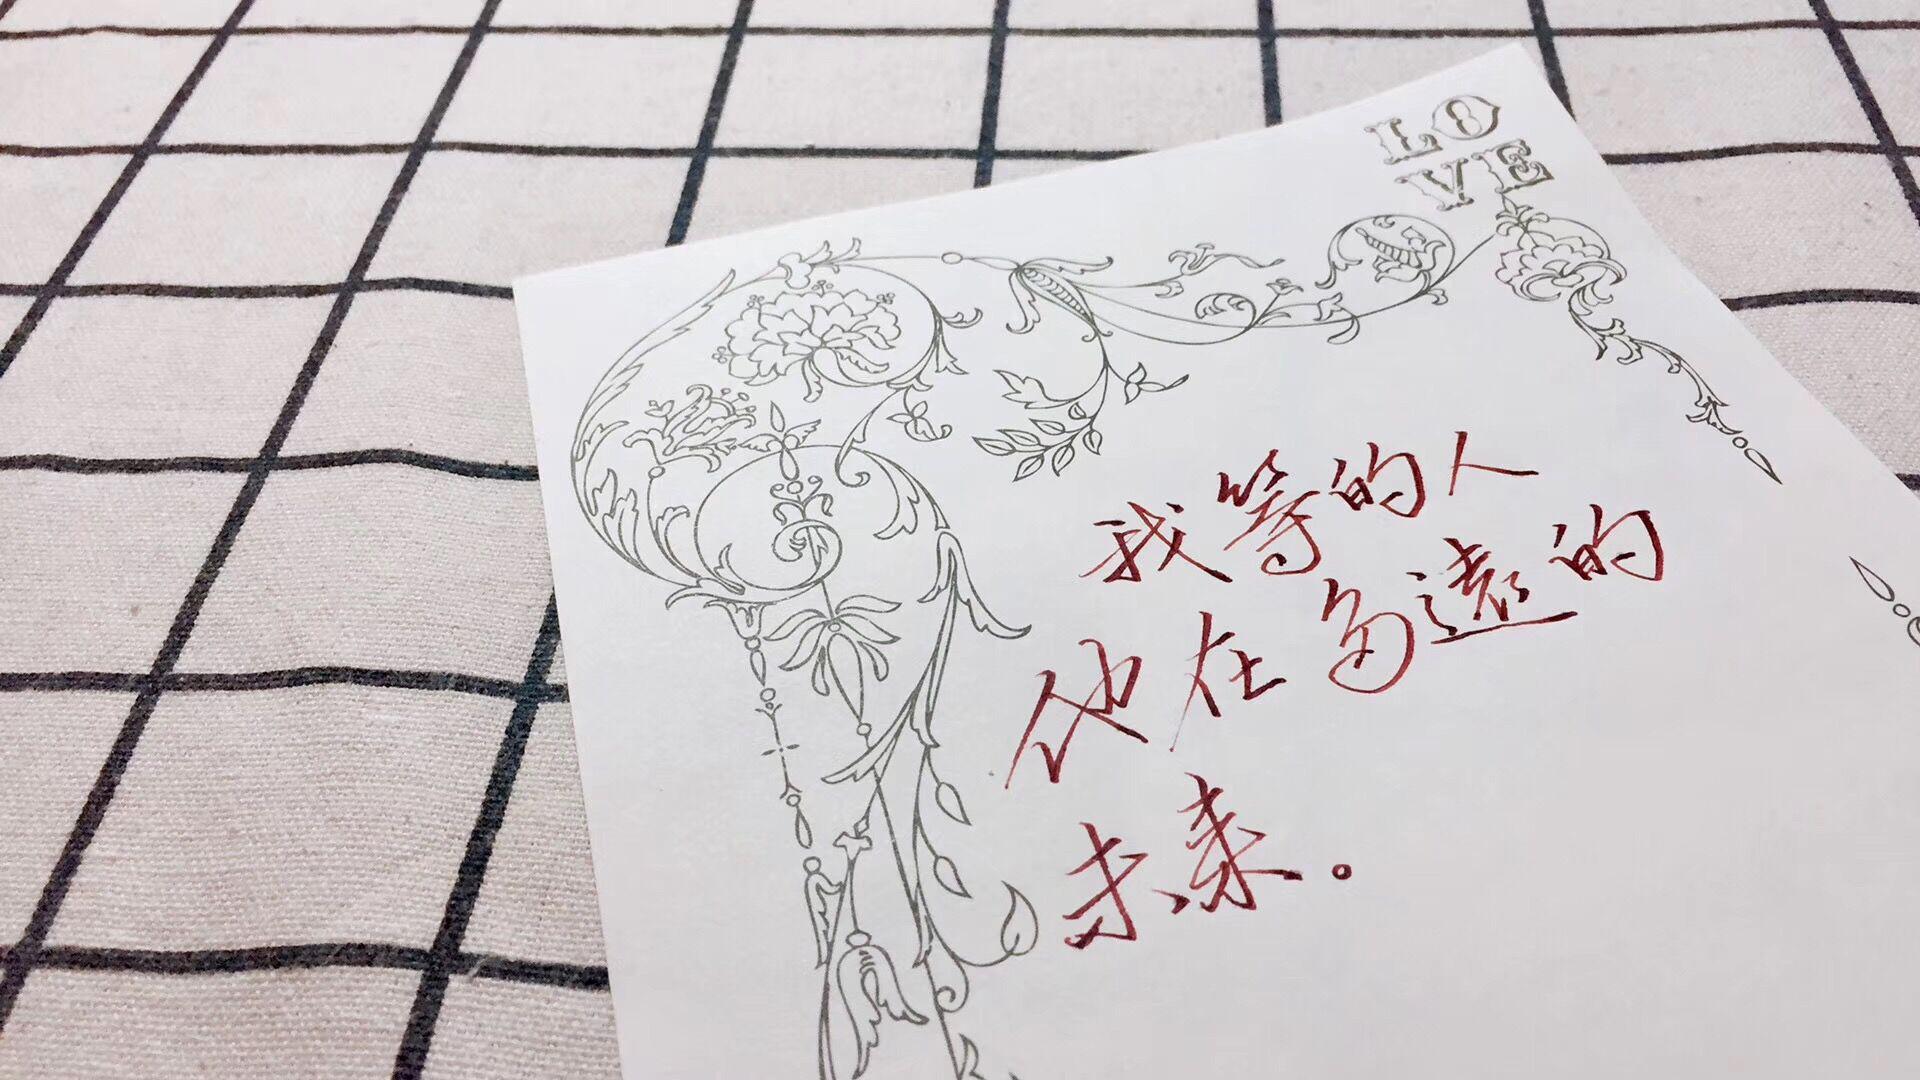 LO
VE
我等的人
他在多遠的
未来.